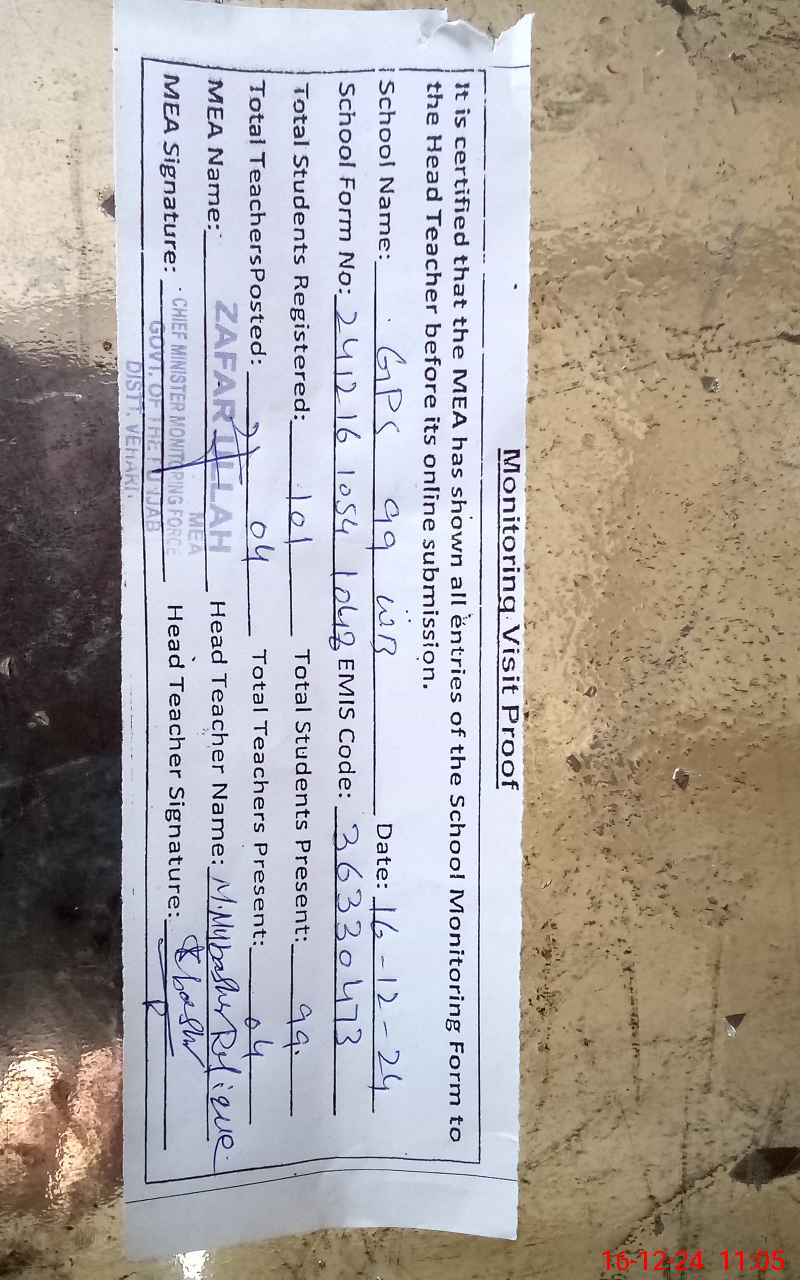 Monitoring Visit Proof
It is certified that the MEA has shown all entries of the School Monitoring Form to
the Head Teacher before its online submission.
School Name: GPS 99 WB Date: 16-12-24
School Form No: 241216 1054 1048 EMIS Code: 36330473
Total Students Registered: 101 Total Students Present: 99.
Total TeachersPosted: 04 Total Teachers Present: 04
MEA Name: ZAFAR ULLAH Head Teacher Name: M. Mubashir Refique
MEA
MEA Signature: Head Teacher Signature:
CHIEF MINISTER MONITORING FORCE
GOVT. OF THE PUNJAB
DISTT. VEHARI.
16-12-24 11:05